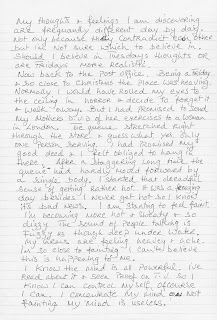 My thoughts & feelings I am discovering
are frequently different day by day.
Not only because they contradict each other
but im not sure which to believe in
Should I believe in mondays thoughts or
are Fridays more realistic.
Now back to the Post office. Being a
& so close to Christmas the place was heaving.
Normally I would have rolled my eyes to
the ceiling in horror & decide to forget it
& walk away. But I had Promised to send
my Mothers of her exercises to a woman
in London. The queue stretched right
through the store & guess what yes only
one Person serving. I had Promised my
good deed & I felt obliged to hang in
there. After a staggering long time the
queue had hardly moved followed by
a single body. I started that dreaded
sense of getting rather hot. It was a
day besides I never get hot so I know
its bad news. I am starting to feel faint
I'm becoming more hot & sweaty & so
dizzy. The sound of People talking is
as though deep under water.
My means are feeling heavy & ache.
Im so close to fainting I can't believe
this is happening to me.
I know the mind is all Powerful, I've
Read about it & seen Proof on t.v. So I
know I can control myself, ofcourse
I can. I concentrate my mind on not
fainting. My mind is useless.